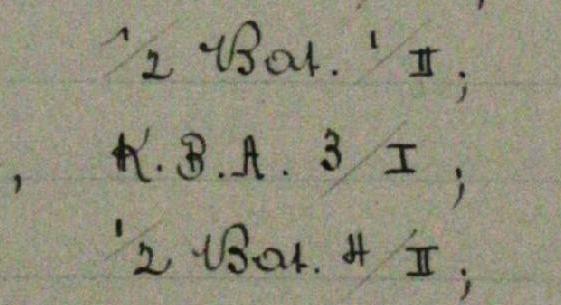 1/2 Bat. 1/II;
, K.B.A. 3/I;
1/2 Bat. 4/II;